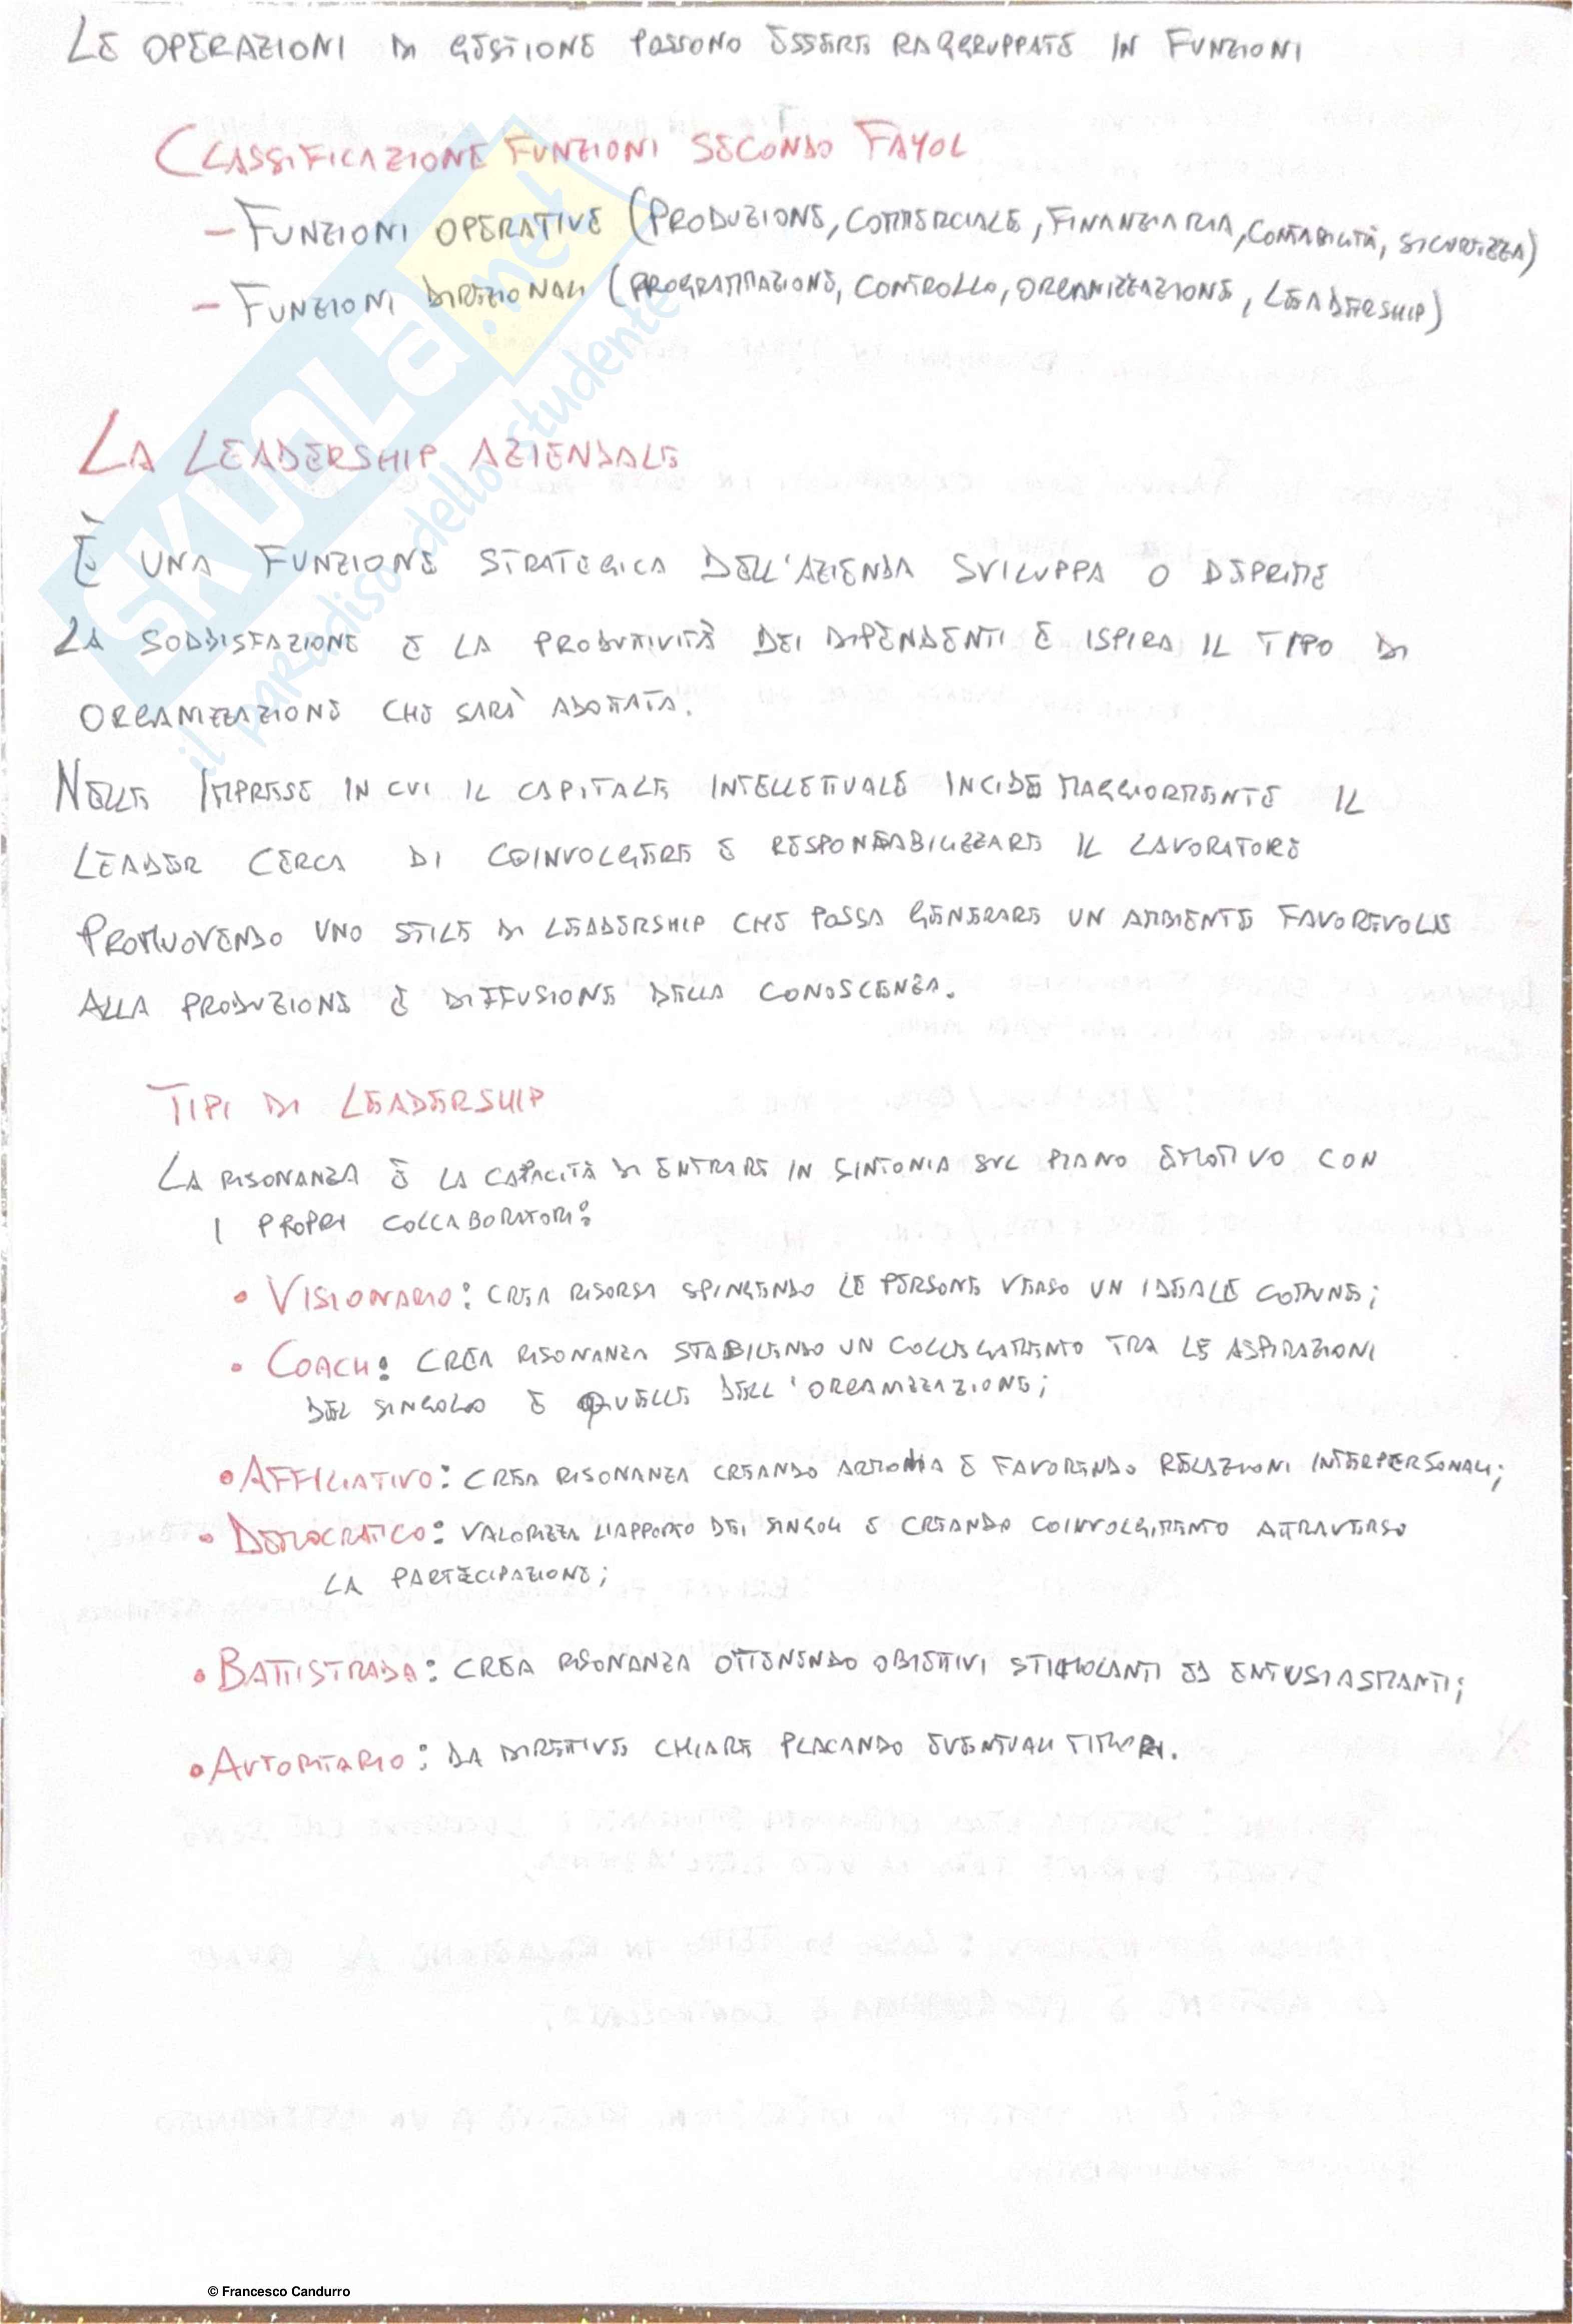 LE OPERAZIONI DI GESTIONE POSSONO ESSERE RAGGRUPPATE IN FUNZIONI
CLASSIFICAZIONE FUNZIONI SECONDO FAYOL
- FUNZIONI OPERATIVE (PRODUZIONE, COMMERCIALE, FINANZIARIA, CONTABILITÀ, SICUREZZA)
- FUNZIONI DIREZIONALI (PROGRAMMAZIONE, CONTROLLO, ORGANIZZAZIONE, LEADERSHIP)
LA LEADERSHIP AZIENDALE
È UNA FUNZIONE STRATEGICA DELL'AZIENDA SVILUPPA O DEPRIME
LA SODDISFAZIONE E LA PRODUTIVITÀ DEI DIPENDENTI E ISPIRA IL TIPO DI
ORGANIZZAZIONE CHE SARÀ ADOTTATA.
NELLE IMPRESE IN CUI IL CAPITALE INTELLETTUALE INCIDE MAGGIORMENTE IL
LEADER CERCA DI COINVOLGERE E RESPONSABILIZZARE IL LAVORATORE
PROMUOVENDO UNO STILE DI LEADERSHIP CHE POSSA GENERARE UN AMBIENTE FAVOREVOLE
ALLA PRODUZIONE E DIFFUSIONE DELLA CONOSCENZA.
TIPI DI LEADERSHIP
LA RISONANZA È LA CAPACITÀ DI ENTRARE IN SINTONIA SUL PIANO EMOTIVO CON
I PROPRI COLLABORATORI:
• VISIONARIO: CREA RISORSA SPINGENDO LE PERSONE VERSO UN IDEALE COMUNE;
• COACH: CREA RISONANZA STABILENDO UN COLLEGAMENTO TRA LE ASPIRAZIONI
DEL SINGOLO E QUELLE DELL'ORGANIZZAZIONE;
• AFFILIATIVO: CREA RISONANZA CREANDO ARMONIA E FAVORENDO RELAZIONI INTERPERSONALI;
• DEMOCRATICO: VALORIZZA L'APPORTO DEI SINGOLI E CREANDO COINVOLGIMENTO ATTRAVERSO
LA PARTECIPAZIONE;
• BATTISTRADA: CREA RISONANZA OTTENENDO OBIETTIVI STIMOLANTI ED ENTUSIASMANTI;
• AUTORITARIO: DA DIRETTIVE CHIARE PLACANDO EVENTUALI TIMORI.
SKUOLa.net
il paradiso dello studente
© Francesco Candurro